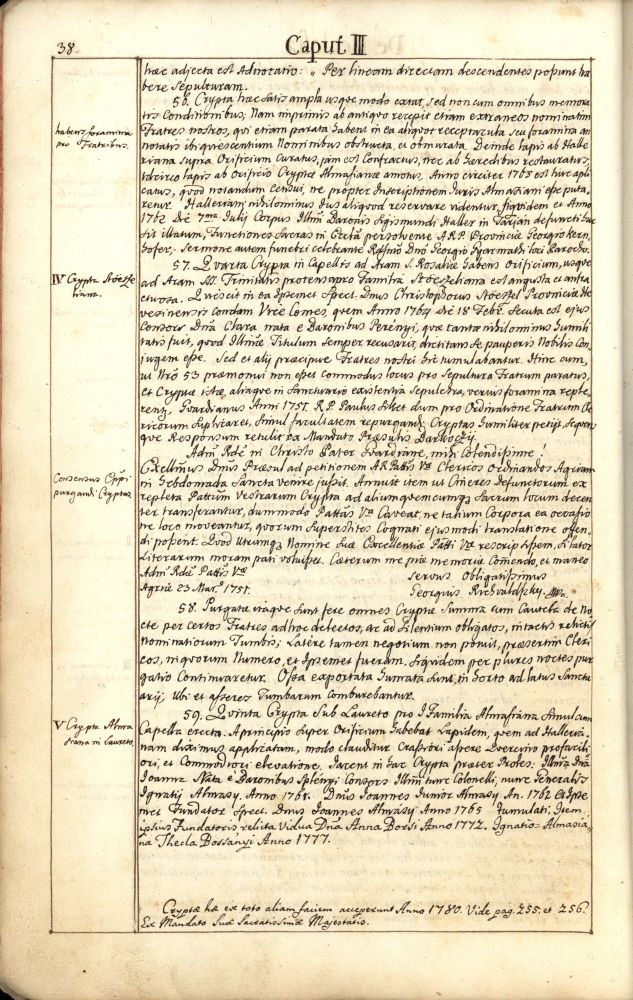 38.
Caput III
hæc adjecta est Adnotatio: „ Per lineam directam descendentes possunt ha
bere Sepulturam.
56. Crypta hæc satis ampla usque modo extat, sed non cum omnibus memora
tis Conditionibus, Nam inprimis ab antiquo recepit etiam extraneos nominatim
habens foramina
pro Fratribus.
Fratres nostros, qui etiam parata habent in ea aliquot receptacula seu foramina an
notatis ibi quiescentium Nominibus obstructa, et obmurata. Deinde lapis ab Halle
riana supra Orificium Curatus, jam est Confractus, nec ab hæredibus restauratus,
idcirco lapis ab orificio Cryptæ Almasianæ amotus, Anno circiter 1765 est huc appli
catus, quod notandum censui, ne propter Inscriptionem Juris Almasiani esse puta
retur. Halleriani nihilominus Jus aliquod reservare videntur, siquidem et Anno
1762 die 7ma Julij Corpus Illmi Baronis Sigismundi Haller in Tarján defuncti huc
sit illatum, Functiones Sacras in Ecclia persolvente A.R.P. Provinciæ Georgio Kern
hofer, Sermone autem funebri celebrante Rdssmo Dno Georgio Gyarmathi loci Parocho.
IV Crypta Stoesse
liana.
57. Quarta Crypta in Capellis ad Aram S. Rosaliæ habens Orificium, usque
ad Aram SS. Trinitatis protensa pro Familia Stoesseliana est angusta et anfra
ctuosa. Quiescit in ea Ipsemet Spect. Dnus Christophorus Stoessel Provinciæ He
vesinensis condam Vice Comes, quem Anno 1764 die 18 Febr. Secuta est ejus
Consors Dna Clara nata e Baronibus Perényi, quæ tantæ nihilominus humili
tatis fuit, quod Illmæ Titulum Semper recusarit, dictitans se pauperis Nobilis Con
jugem esse. Sed et alij præcipue Fratres nostri hic tumulabantur. Hinc cum,
ut Nro 53 præmonui non esset commodus locus pro Sepultura Fratrum paratus,
et Cryptæ istæ, aliaque in Sanctuario existentia Sepulchra, verius foramina reple
rentur, Guardianus Anni 1751. R.P. Paulus Siket dum pro Ordinatione Fratrum Cle
ricorum Supplicaret, Simul facultatem repurgandi Cryptas humiliter petijt, Sequen
que Responsum retulit ex Mandato Præsulis Barkoczy.
Adm Rde in Christo Pater Guardiane, mihi Colendissime!
Consensus Eppi
purgandi Cryptas
Excellmus Dnus Præsul ad petitionem A.R. Pattis Væ Clericos Ordinandos Agriam
in hebdomada Sancta venire jussit. Annuit item ut Cineres Defunctorum ex
repleta Pattum Vestrarum Crypta ad alium quemcumque Sacrum locum decen
ter transferantur, dummodo Pattas Vra Caveat, ne talium Corpora ea occasio
ne loco moveantur, quorum Superstites Cognati ejusmodi translatione offen
di possent. Quod utrumque Nomine Suæ Excellentiæ Patti Væ rescripsissem, si lator
Literarum moram pati voluisset. Cæterum me piæ memoriæ Commendo, et maneo
Adm Rdæ Pattis Væ
Servus Obligatissimus
Agriæ 23 Mar. 1751.
Georgius Richvaldszky
58. Purgatæ itaque sunt fere omnes Cryptæ Summa cum Cautela de No
cte per certos Fratres ad hoc delectos, ac ad Silentium obligatos, intactis relictis
Nominatiorum Tumbis; Latere tamen negotium non potuit, præsertim Cleri
cos, in quorum Numero, et Ipsemet fueram, siquidem per plures noctes pur
gatio Continuaretur. Ossa exportata humata sunt in horto ad latus Sanctu
arij, Ubi et asseres Tumbarum comburebantur.
V Crypta Alma
siana in laureto
59. Quinta Crypta Sub Laureto pro I Familia Almasiana Simul cum
Capella erecta. A principio Super Orificium habebat Lapidem, quem ad Halleria
nam diximus applicatum, modo clauditur Crassiori assere Quercino pro facili
ori, et Commodiori elevatione. Jacent in hac Crypta præter Proles: Illma Dna
Joanna Nata e Baronibus Splényi Consors Illmi tunc Colonelli, nunc Generalis
Ignatij Almasy Anno 1761. Dnus Joannes Junior Almasy An. 1762 Et Ipse
met Fundator Spect. Dnus Joannes Almasy Anno 1765 Tumulati, Item
ipsius Fundatoris relicta Vidua Dna Anna Borsi Anno 1772. Ignatio-Almasia,
na Thecla Bossanyi Anno 1777.
Cryptæ hæ ex toto aliam faciem acceperunt Anno 1780. Vide pag. 255. et 256.
Ex Mandato Suæ Sacratissimæ Majestatis.